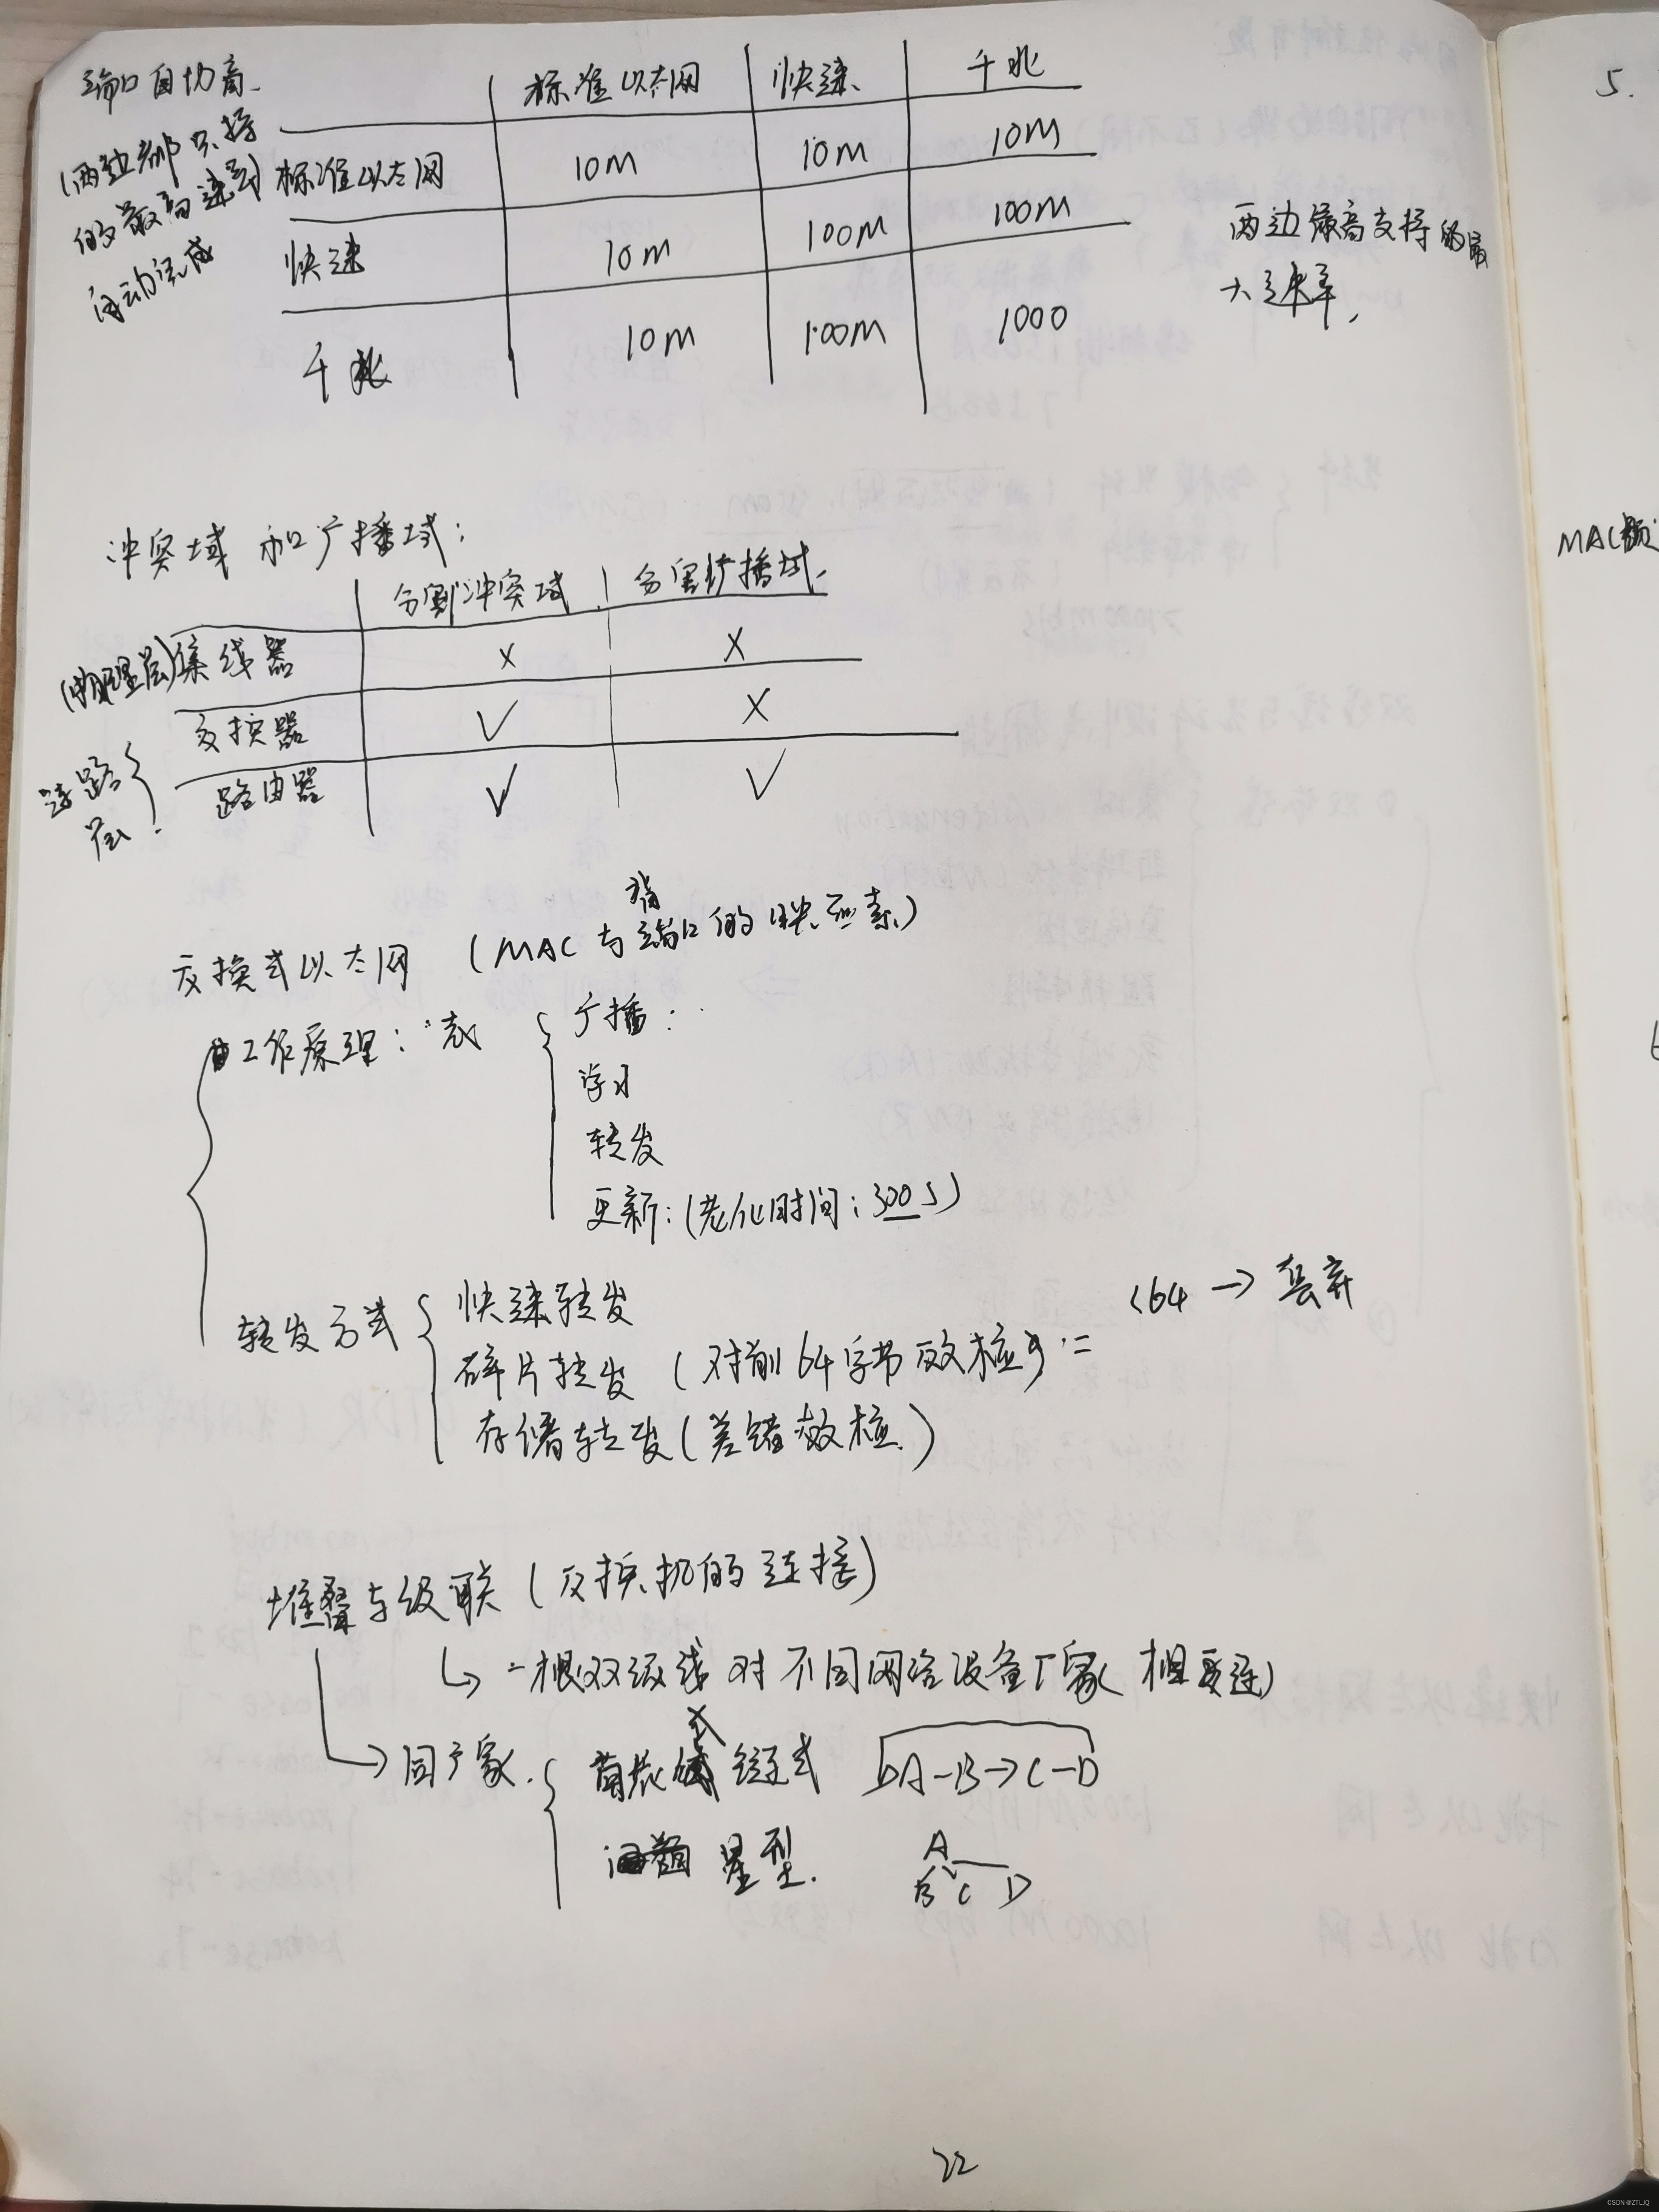 端口自协商
(两边都支持的最高速率自动流成
标准以太网 快速 千兆
标准以太网 10M 10M 10M
快速 10M 100M 100M
千兆 10M 100M 1000
两边最高支持的最
大速率,
冲突域和广播域:
分割冲突域 分割广播域
(物理层)集线器 x x
交换器 √ x
路由器 √ √
链路层
交换式以太网 (MAC与端口的映应表)
工作原理: 表
广播:
学习
转发
更新:(老化时间:300s)
转发方式
快速转发
碎片转发 (对前64字节效检) <64 → 丢弃
存储转发(差错效检)
堆叠与级联(交换机的连接)
↳ 一根双绞线对不同网络设备厂家(相互连)
→ 同厂家.
菊花式链式 A-B→C-D
星型. A B C D
22
5.
MAC
CSDN @ZTLJQ